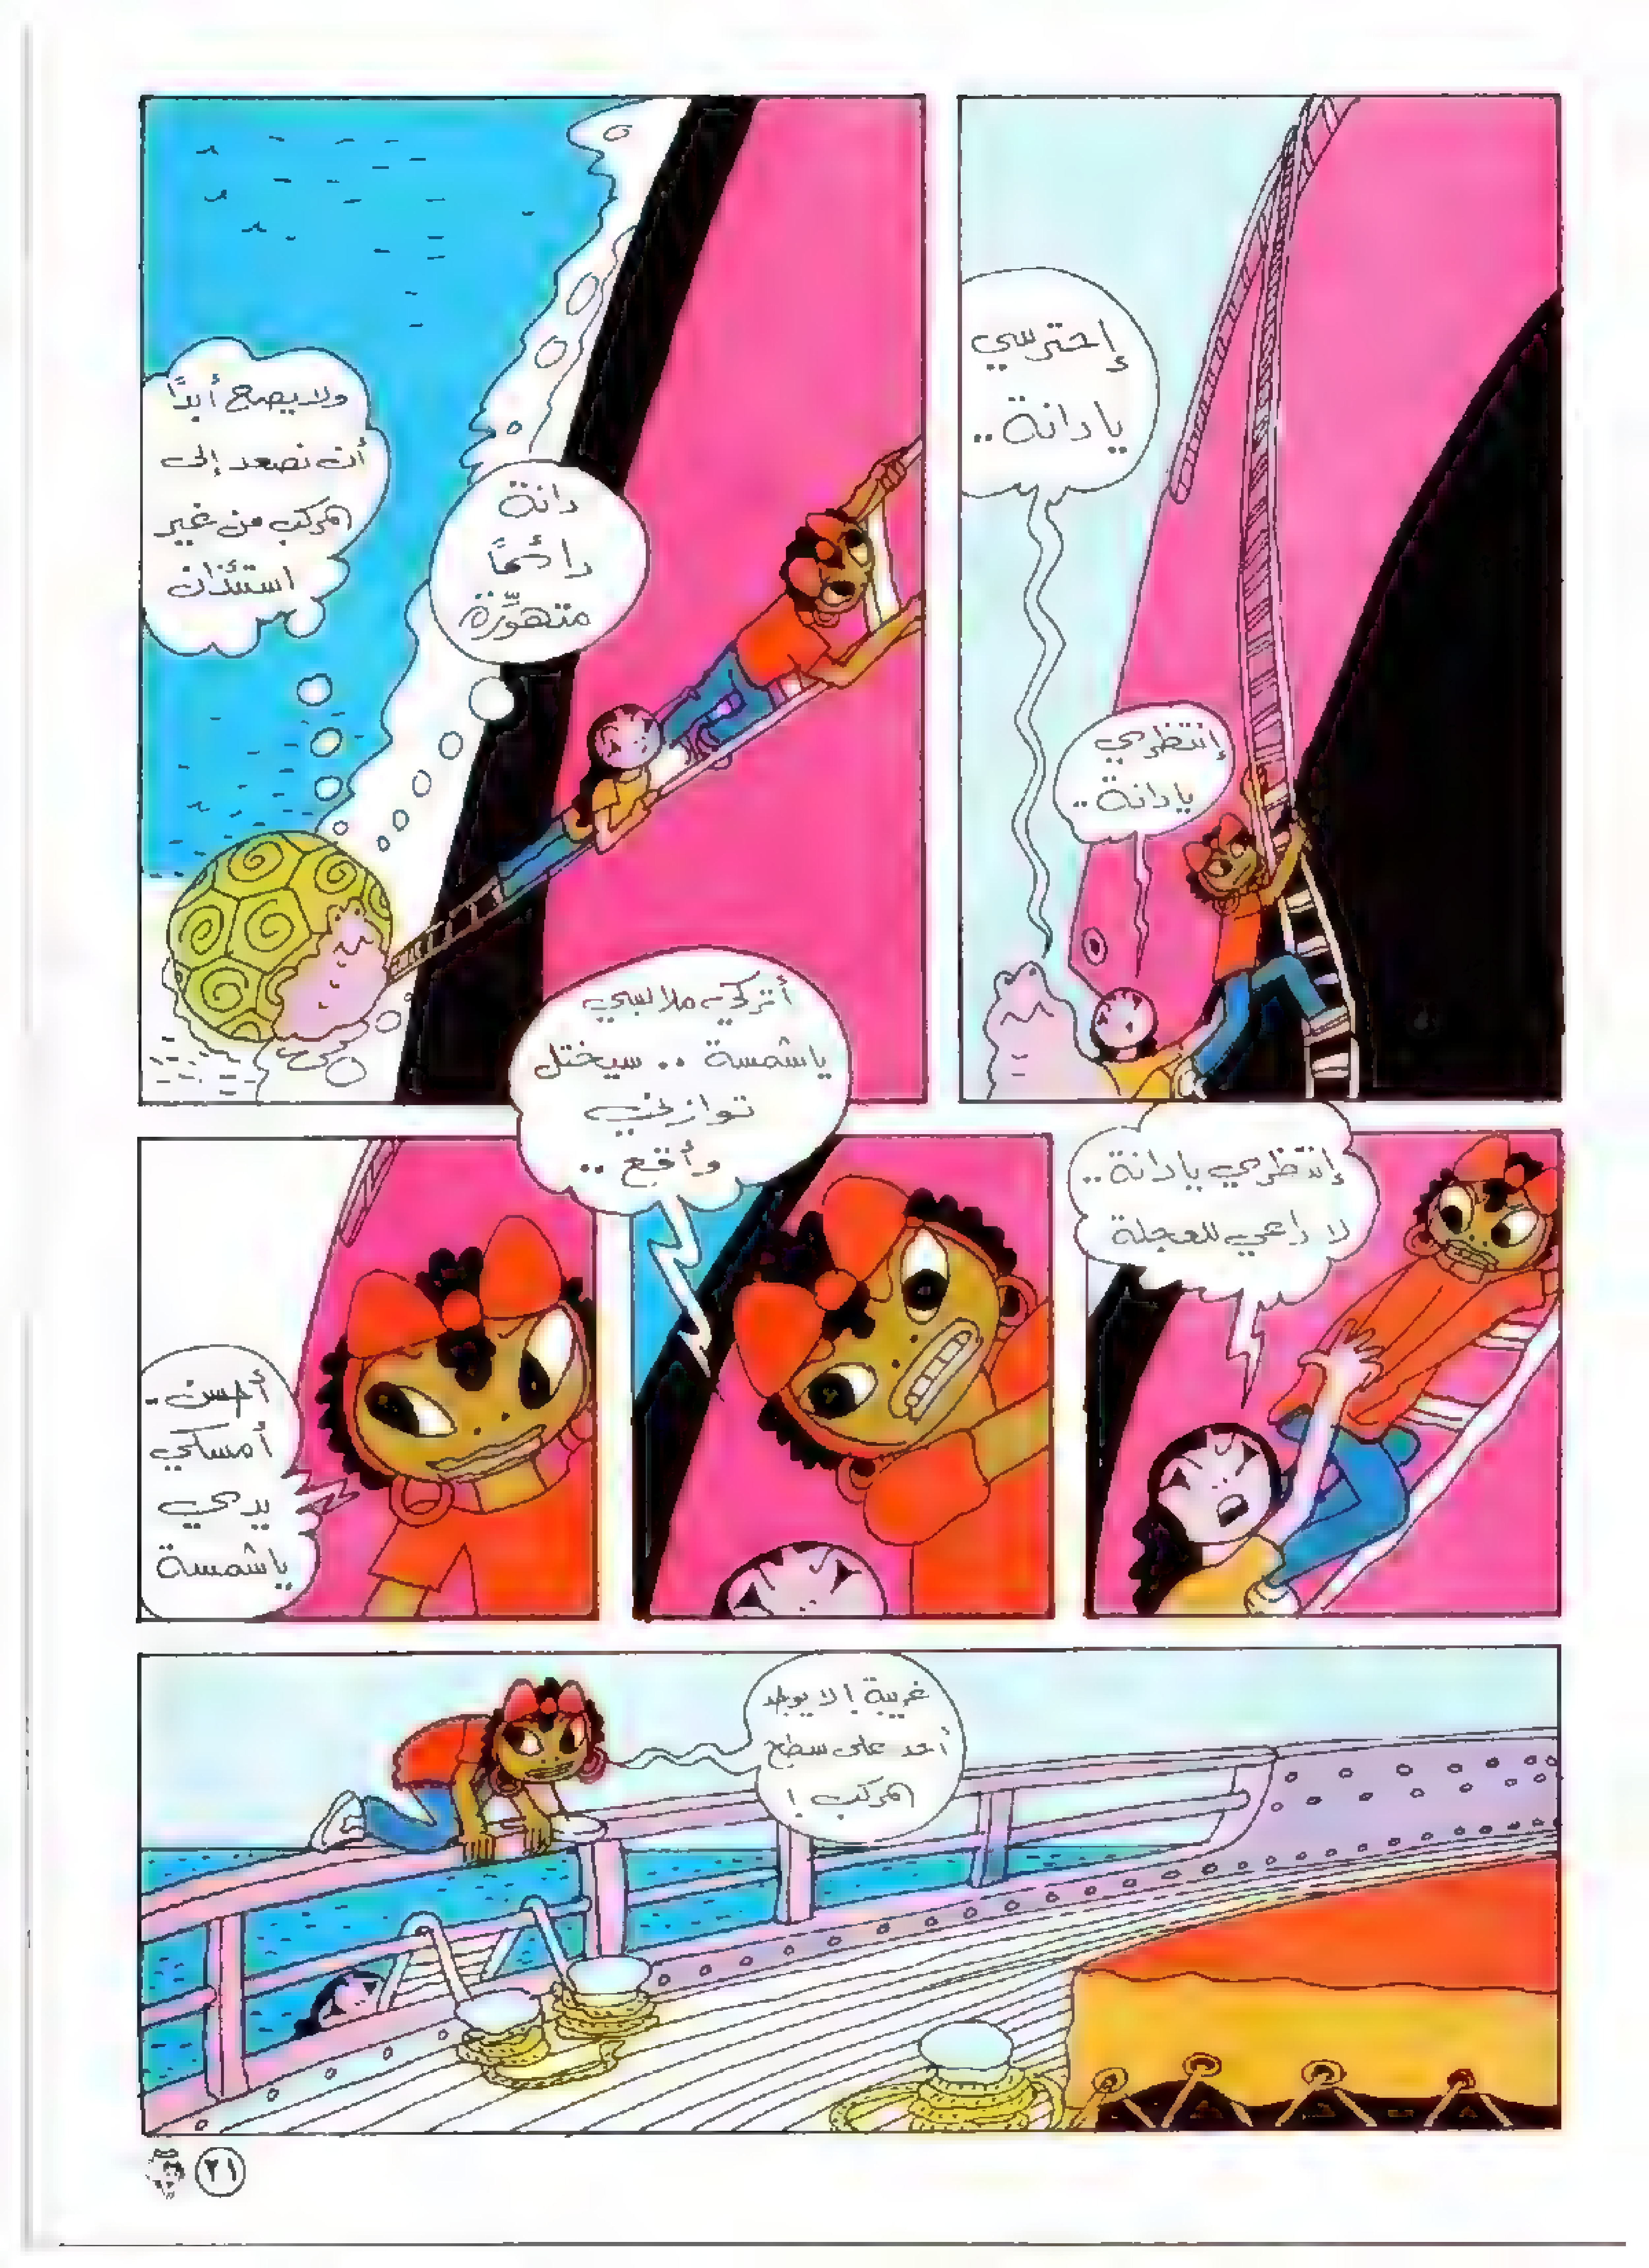 إحترسي
يا دانة..
إنتظري
يا دانة..
دانة
دائمًا
متهوِّرة
ولا يصح أبدًا
أن نصعد إلى
المركب من غير
استئذان
إنتظري يا دانة..
لا داعي للعجلة
أتركي ملابسي
يا شمسة .. سيختل
توازني
وأقع ..
أحسن..
أمسكي
يدي
يا شمسة
غريبة! لا يوجد
أحد على سطح
المركب!
٢١